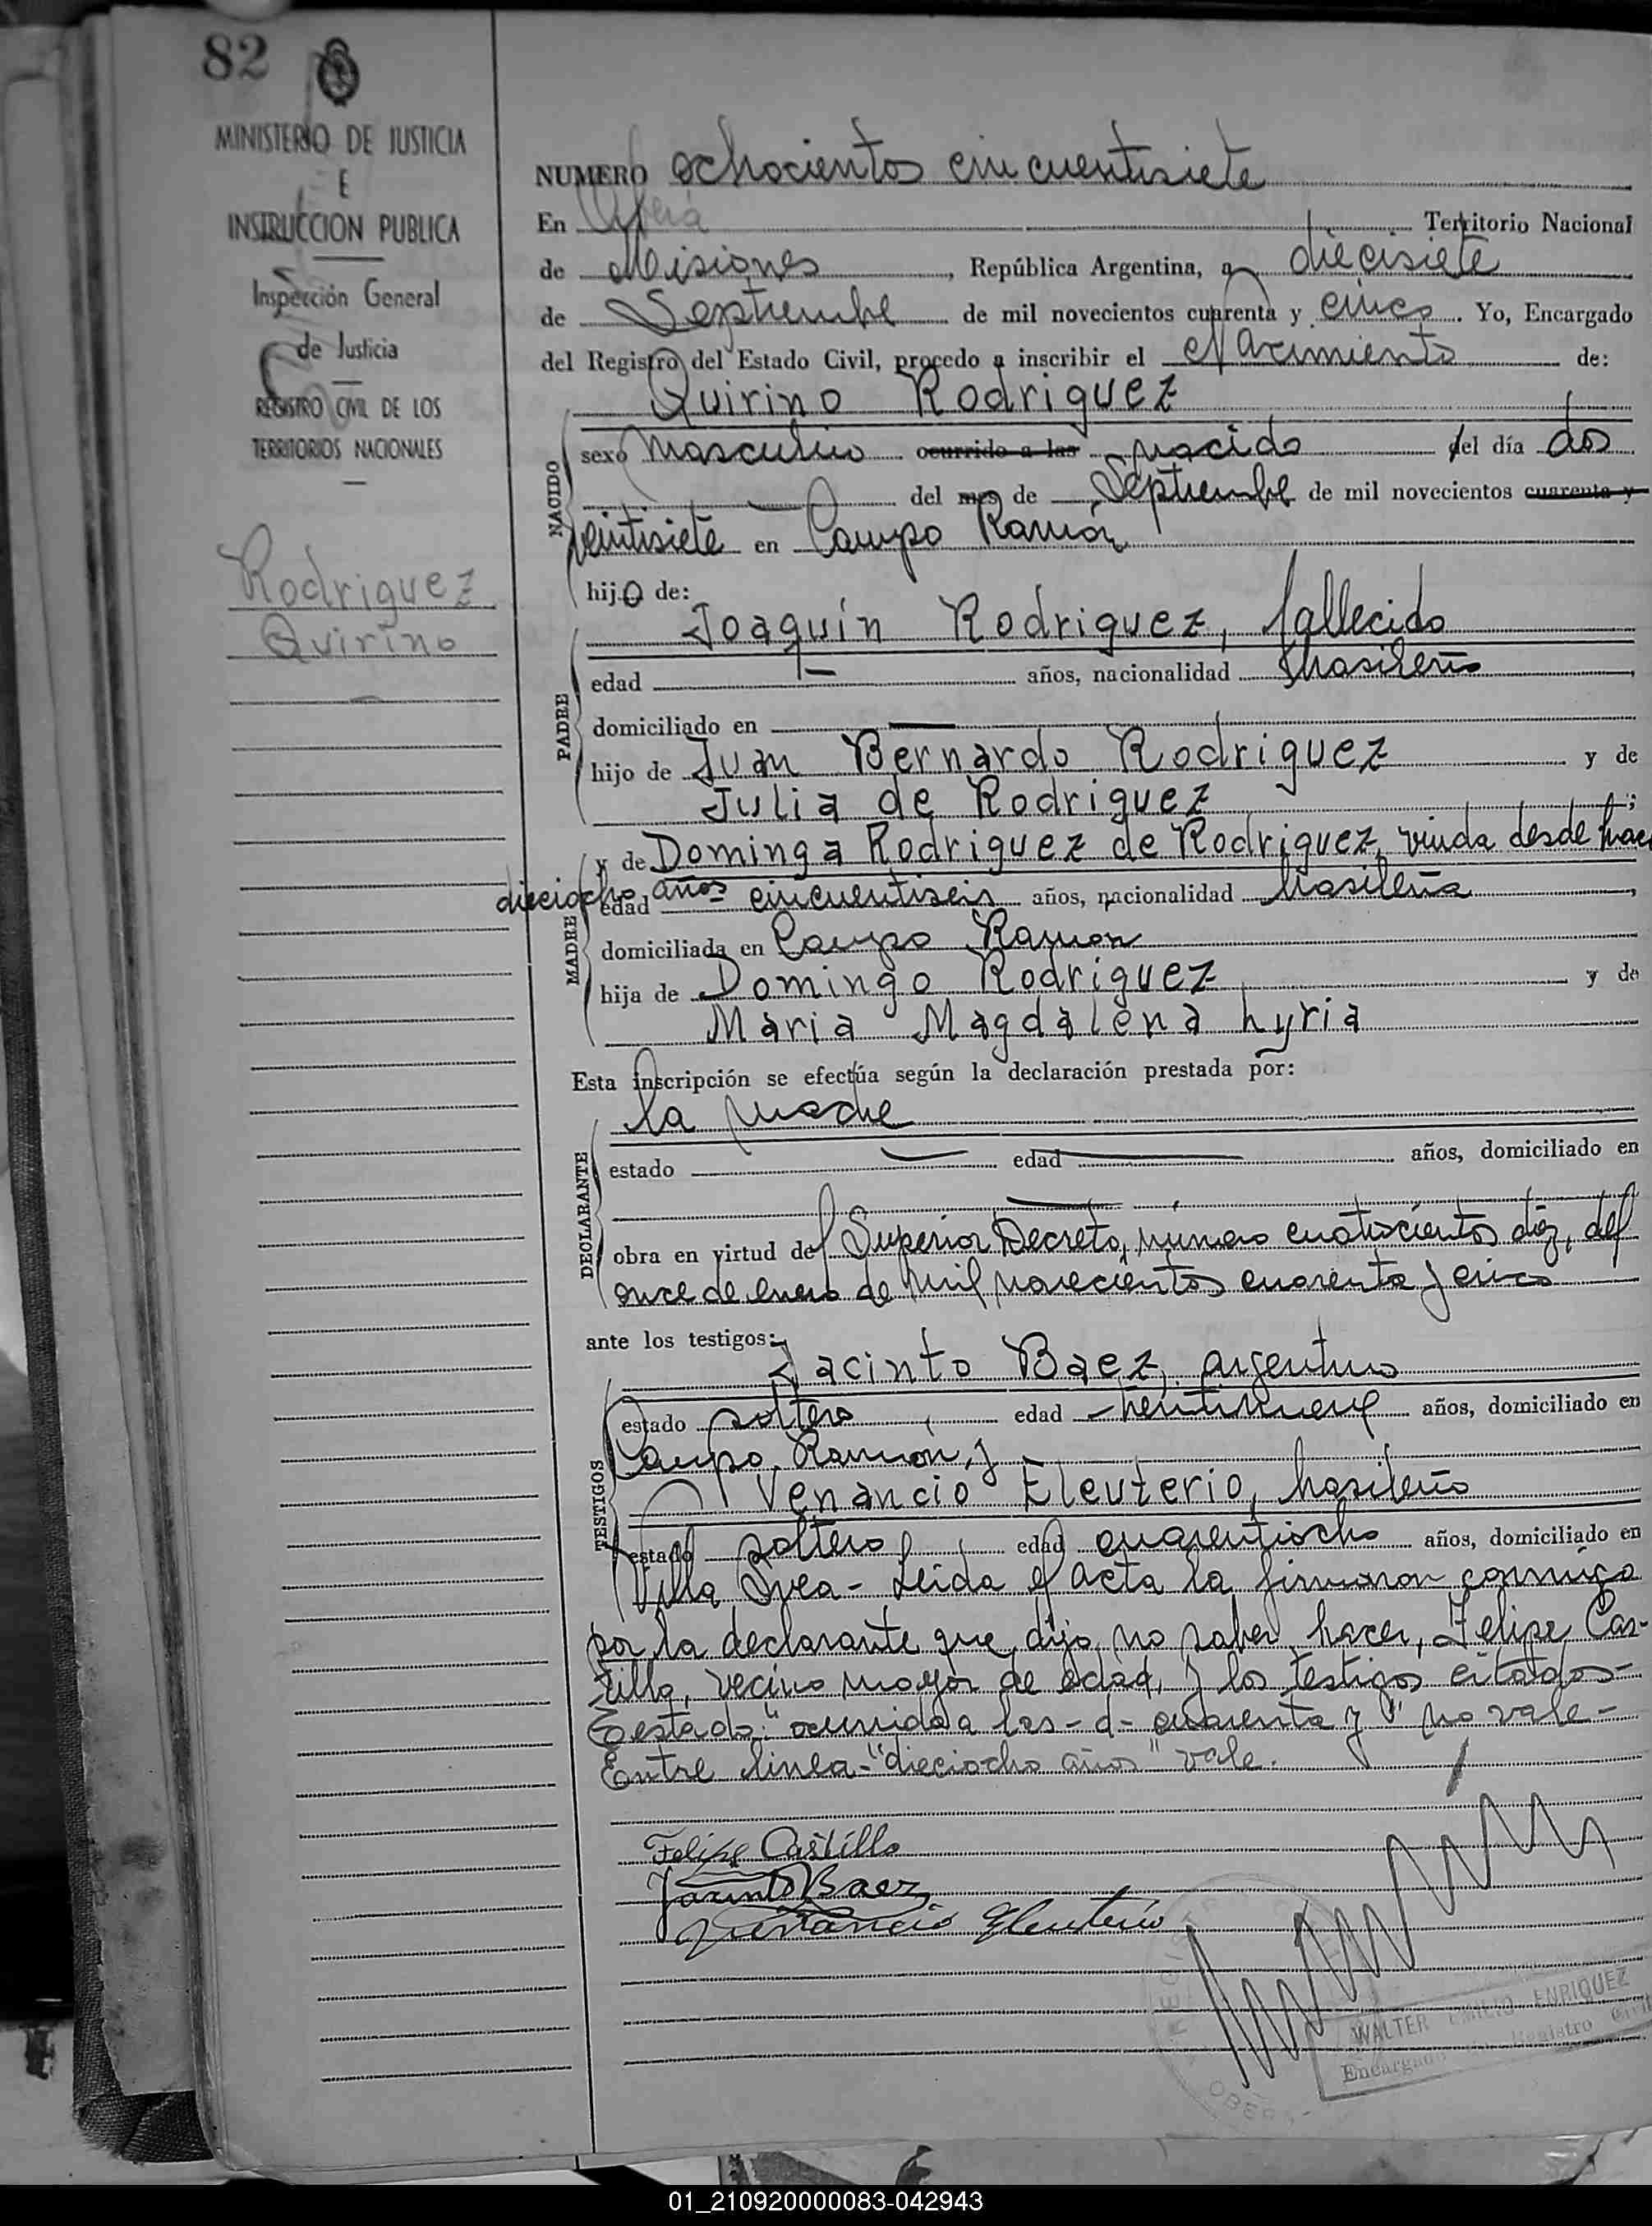 82
MINISTERIO DE JUSTICIA
E
INSTRUCCION PUBLICA
Inspección General
de Justicia
REGISTRO CIVIL DE LOS
TERRITORIOS NACIONALES
Rodriguez
Quirino
NUMERO ochocientos cincuentisiete
En Oberá Territorio Nacional
de Misiones, República Argentina, a diecisiete
de Septiembre de mil novecientos cuarenta y cinco. Yo, Encargado
del Registro del Estado Civil, procedo a inscribir el Nacimiento de:
Quirino Rodriguez
NACIDO
sexo Masculino ocurrido a las nacido del día dos
del mes de Septiembre de mil novecientos cuarenta y
veintisiete en Campo Ramón
hijo de:
Joaquín Rodriguez, fallecido
PADRE
edad — años, nacionalidad brasileño,
domiciliado en —
hijo de Juan Bernardo Rodriguez y de
Julia de Rodriguez;
y de Dominga Rodriguez de Rodriguez, viuda desde hace
dieciocho años
MADRE
edad cincuentiseis años, nacionalidad brasileña,
domiciliada en Campo Ramon
hija de Domingo Rodriguez y de
Maria Magdalena Lyria
Esta inscripción se efectúa según la declaración prestada por:
la madre
DECLARANTE
estado — edad — años, domiciliado en
—
obra en virtud del Superior Decreto, número cuatrocientos diez, del
once de enero de mil novecientos cuarenta y cinco
ante los testigos:
Jacinto Baez, argentino
TESTIGOS
estado soltero, edad años, domiciliado en
Campo Ramón, y
Venancio Eleuterio, brasileño
estado soltero, edad cuarentiocho años, domiciliado en
Villa Svea - Leida el acta la firmaron conmigo
por la declarante que dijo no saber hacer, Felipe Cas-
tillo, vecino mayor de edad, y los testigos citados-
Testado: "ocurrido a las - d - cuarenta y" no vale-
Entre linea - "dieciocho años" vale.
Felipe Castillo
Jacinto Baez
Venancio Eleuterio
WALTER EMILIO ENRIQUEZ
Encargado Registro Civil
OBERA
01_210920000083-042943